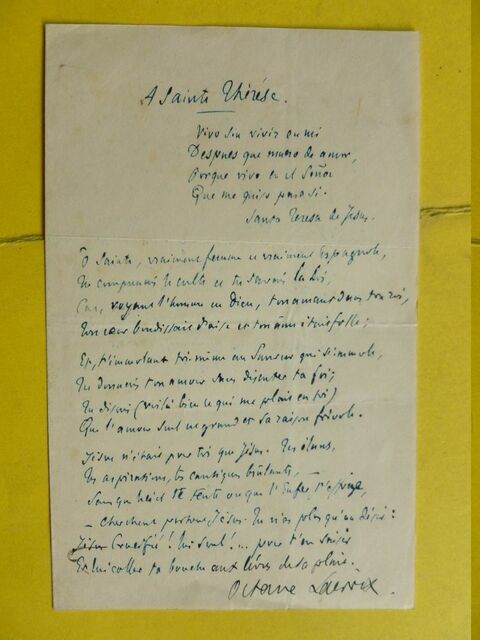 A Sainte Thérèse.
Vivo sin vivir en mi
Despues que muero de amor,
Porque vivo en el Señor
Que me quiso para si.
Santa Teresa de Jesus.
O Sainte, vraiment femme et vraiment Espagnole,
Tu comprenais le culte et tu savais la Loi,
Car, voyant l'homme en Dieu, ton amant dans ton roi,
Ton cœur bondissait d'aise et ton âme était folle;
Et, t'immolant toi-même au Sauveur qui s'immole,
Tu donnais ton amour sans discuter ta foi;
Tu disais (voilà bien ce qui me plait en toi)
Que l'amour seul est grand et sa raison frivole.
Jésus n'était pour toi que Jésus. Tes élans,
Tes aspirations, tes cantiques brûlants, —
Sans que le ciel te tente ou que l'Enfer
— Cherchent partout Jésus. Tu n'as plus qu'un Désir:
Jésus Crucifié! lui seul!... pour t'en saisir
Et lui coller ta bouche aux lèvres de sa plaie.
Octave Lacroix.